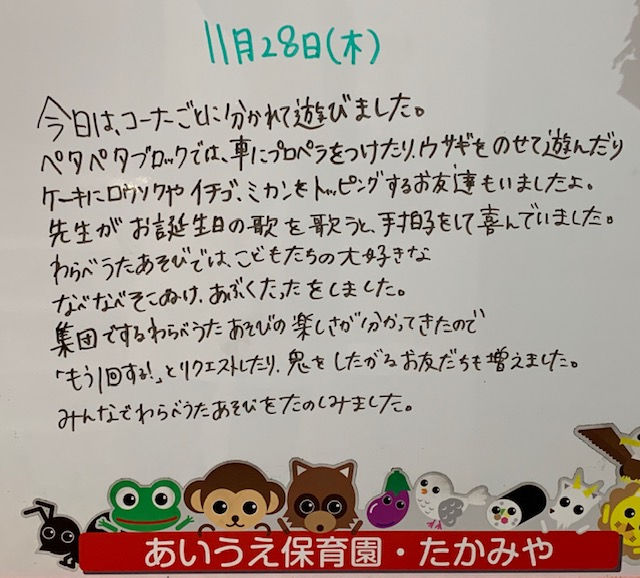 11月28日(木)
今日は、コーナーごとに分かれて遊びました。
ペタペタブロックでは、車にプロペラをつけたり、ウサギをのせて遊んだり
ケーキにロウソクやイチゴ、ミカンをトッピングするお友達もいましたよ。
先生がお誕生日の歌を歌うと、手拍子をして喜んでいました。
わらべうたあそびでは、こどもたちの大好きな
なべなべそこぬけ、あぶくたったをしました。
集団でするわらべうたあそびの楽しさが分かってきたので
「もう1回する!」とリクエストしたり、鬼をしたがるお友だちも増えました。
みんなでわらべうたあそびをたのしみました。
あいうえ保育園・たかみや